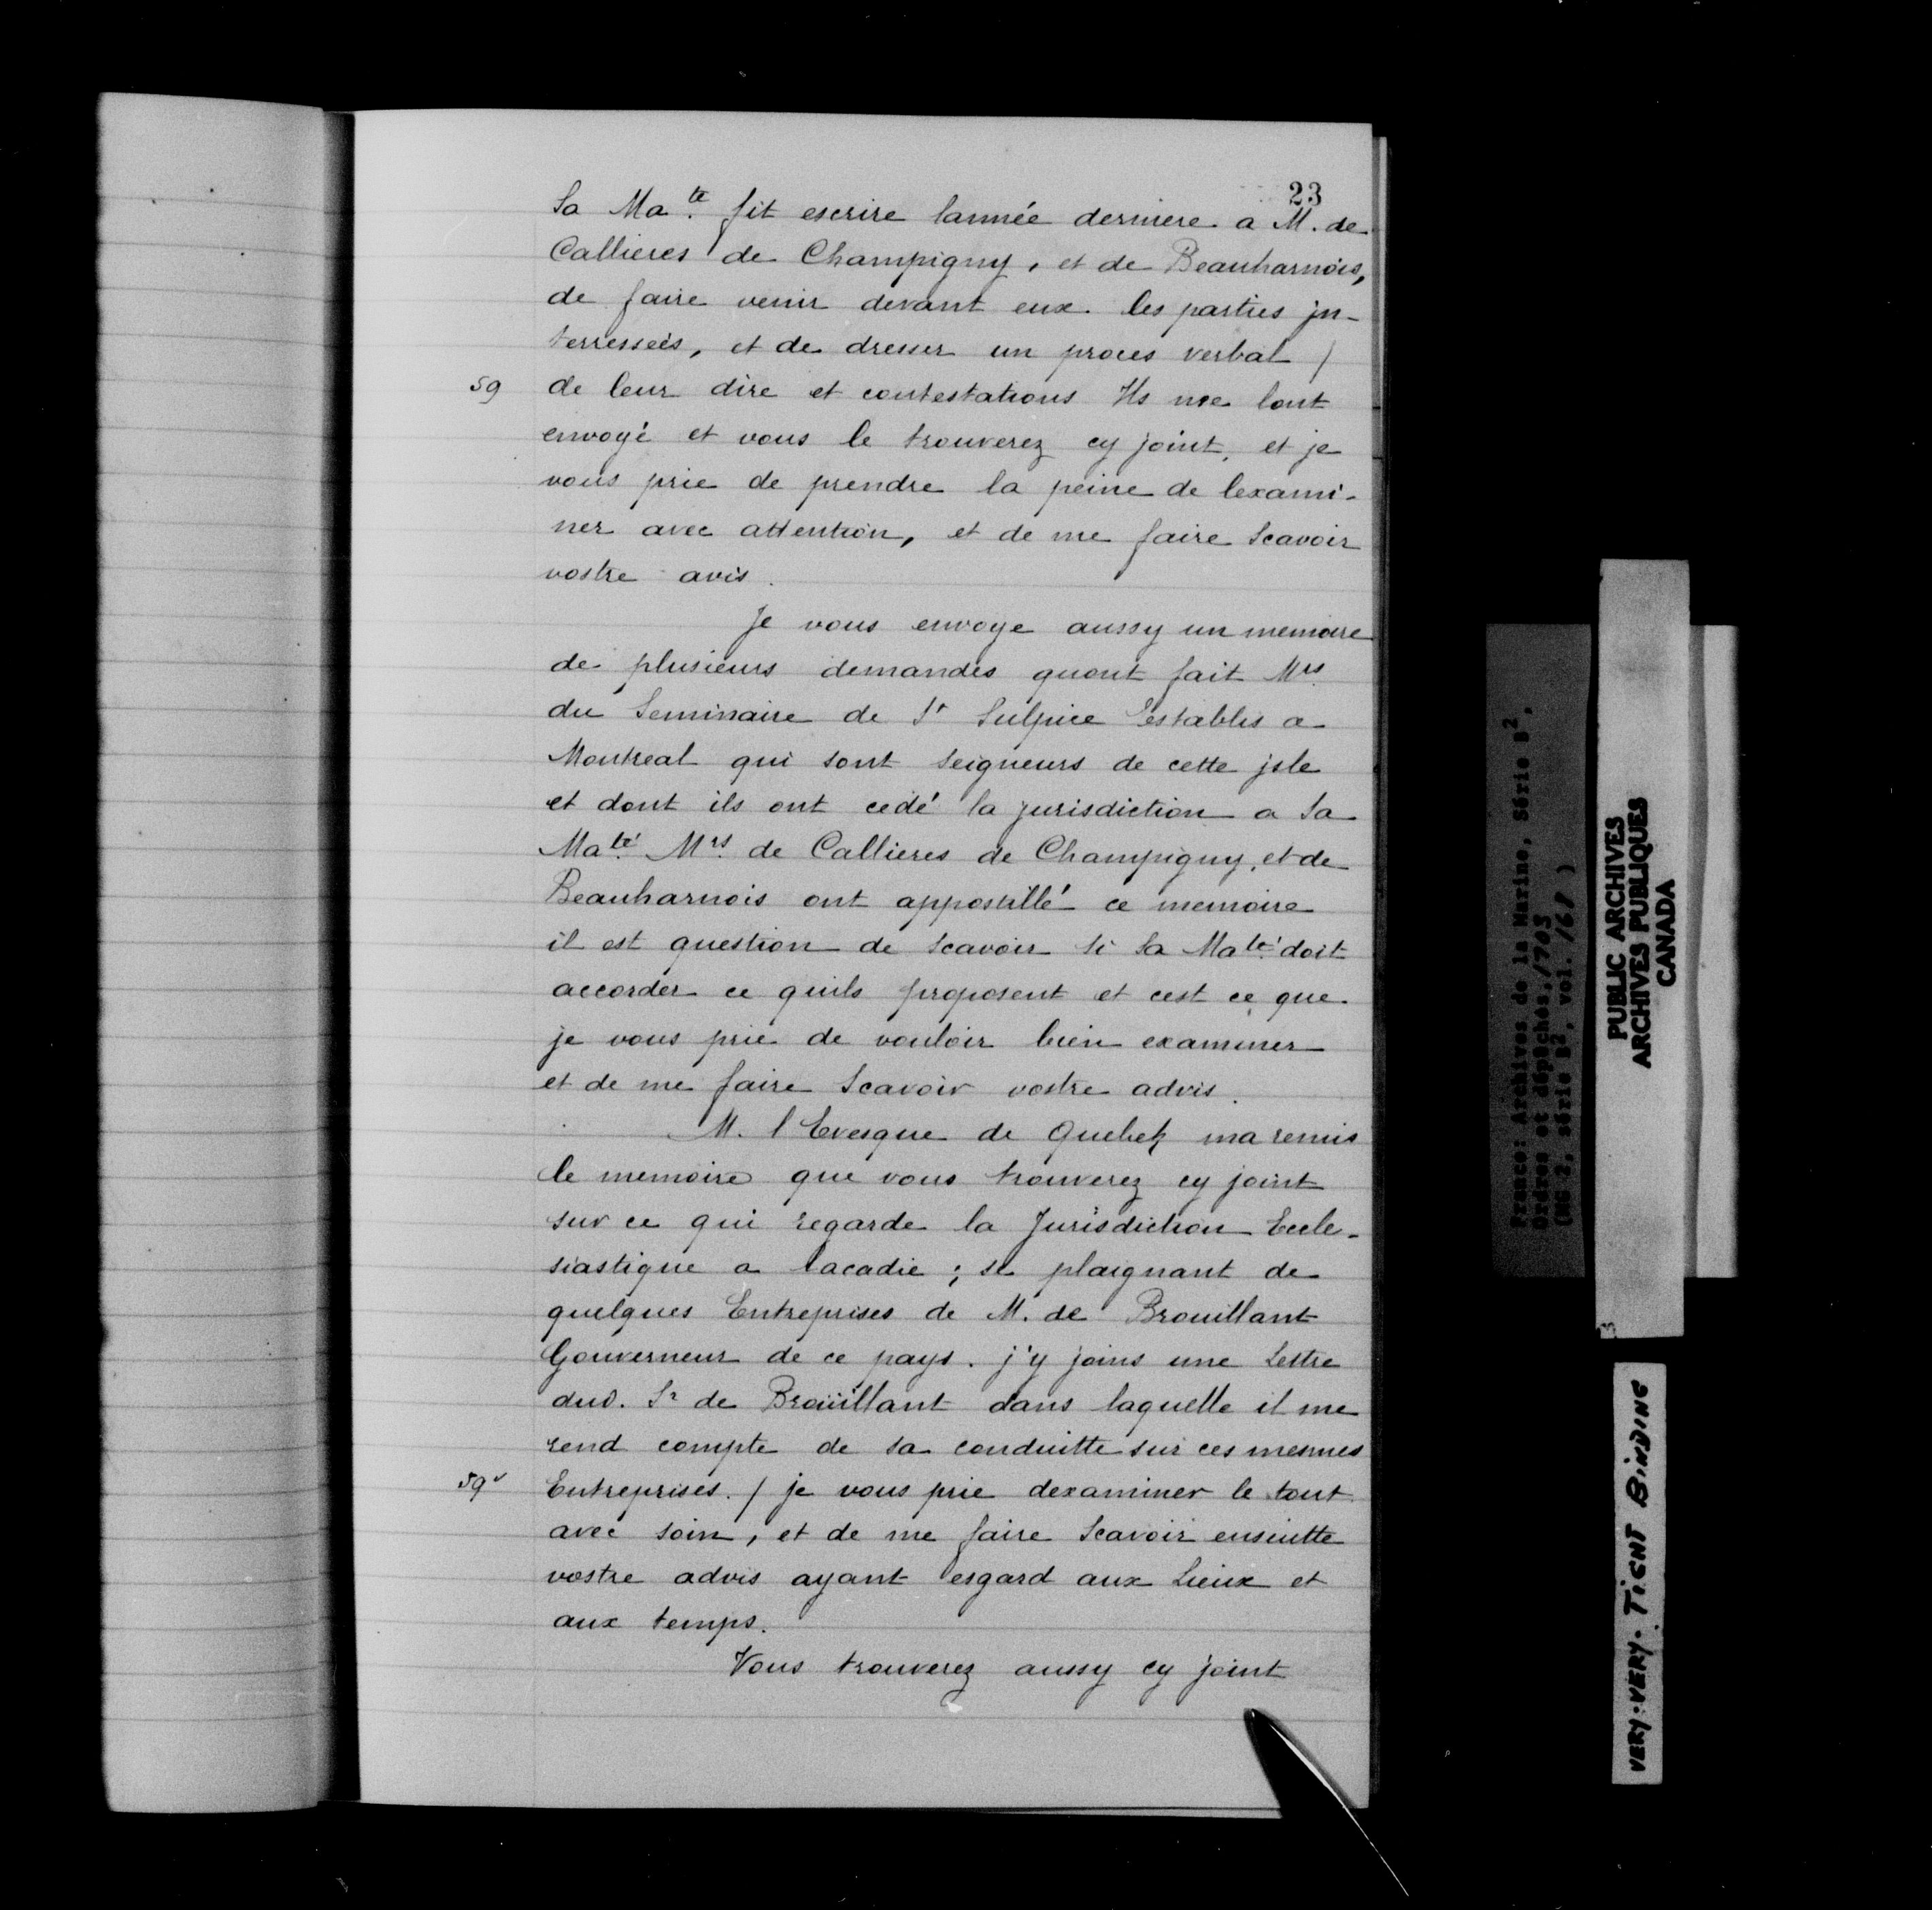 23
Sa Ma.té fit escrire lannée derniere a M. de
Callieres de Champigny, et de Beauharnois,
de faire venir devant eux. les parties jn-
terresseés, et de dresser un proces verbal /
59 de leur dire et contestations Ils me lont
envoyé et vous le trouverez cy joint, et je
vous prie de prendre la peine de lexami-
ner avec attention, et de me faire Scavoir
vostre avis.
Je vous envoye aussy un memoire
de plusieurs demandes quont fait Mrs
du Seminaire de St Sulpice establis a
Montreal qui sont Seigneurs de cette jsle
et dont ils ont cedé la jurisdiction a Sa
Ma.té Mrs. de Callieres de Champigny, et de
Beauharnois ont appostillé ce memoire
il est question de Scavoir Si Sa Ma.té doit
accorder ce quils proposent et cest ce que
je vous prie de vouloir bien examiner
et de me faire Scavoir vostre advis.
M. l Evesque de Quebek ma remis
le memoire que vous trouverez cy joint
sur ce qui regarde la Jurisdiction Eccle-
siastique a lacadie ; se plaignant de
quelques Entreprises de M. de Brouillant
Gouverneur de ce pays. j'y joins une Lettre
dud. Sr de Broüillant dans laquelle il me
rend compte de sa conduitte sur ces mesmes
59v Entreprises. / je vous prie dexaminer le tout
avec soin, et de me faire Scavoir ensuitte
vostre advis ayant esgard aux Lieux et
aux temps.
Vous trouverez aussy cy joint
France: Archives de la Marine, Série B2,
Ordres et dépêches, 1703
(MG 2, série B2, vol. 168)
PUBLIC ARCHIVES
ARCHIVES PUBLIQUES
CANADA
3
VERY. VERY. TIGHT BINDING